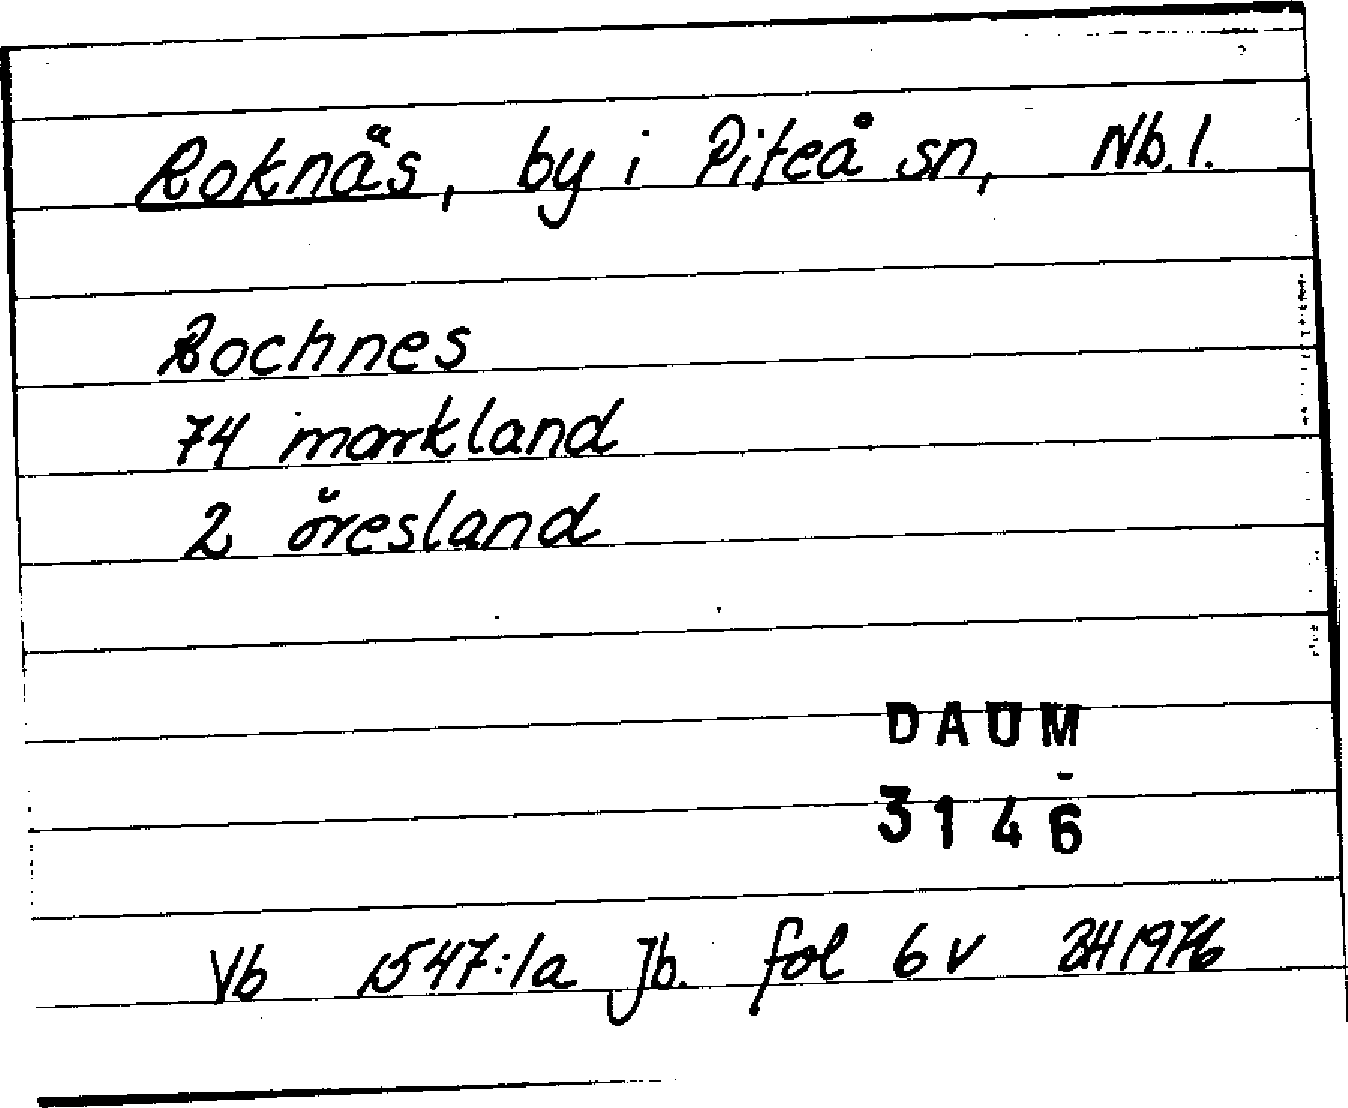 Roknäs, by i Piteå sn, Nb. l.
Rochnes
74 markland
2 öresland
DAUM
3146
Vb 1547:1a Jb. fol 6 v BH 1976